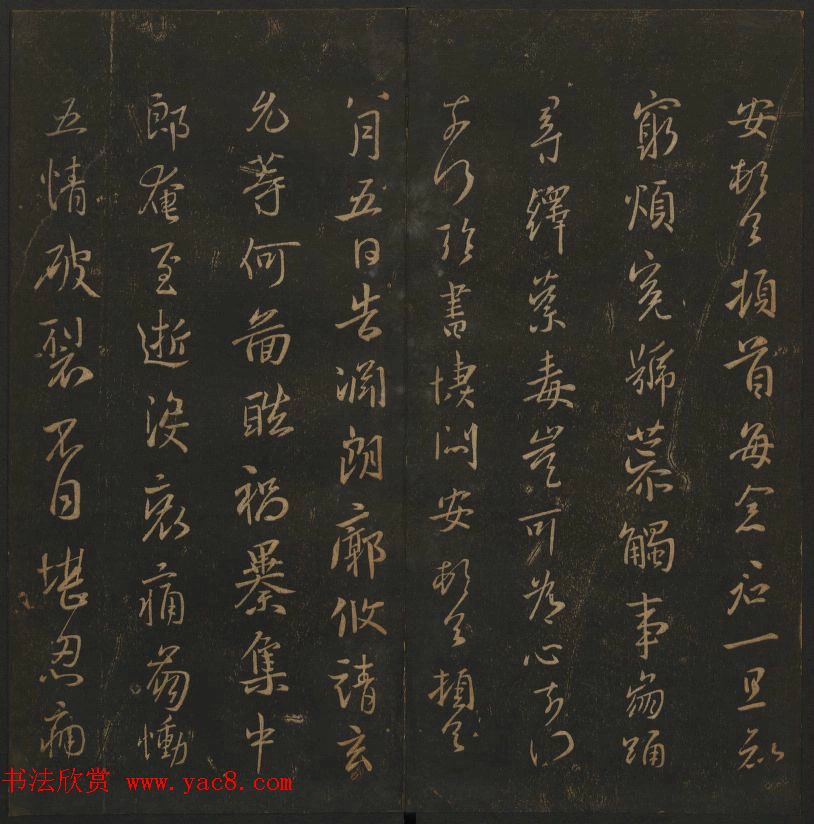 安頓首頓首每念君一旦知
窮煩冤號慕觸事崩踊
尋繹荼毒豈可為心奈何
奈何臨書悽悶安頓首頓首
八月五日告淵朗廓攸靖玄
允等何圖酷禍暴集中
郎奄至逝没哀痛崩慟
五情破裂不自堪忍痛
书法欣赏 www.yac8.com